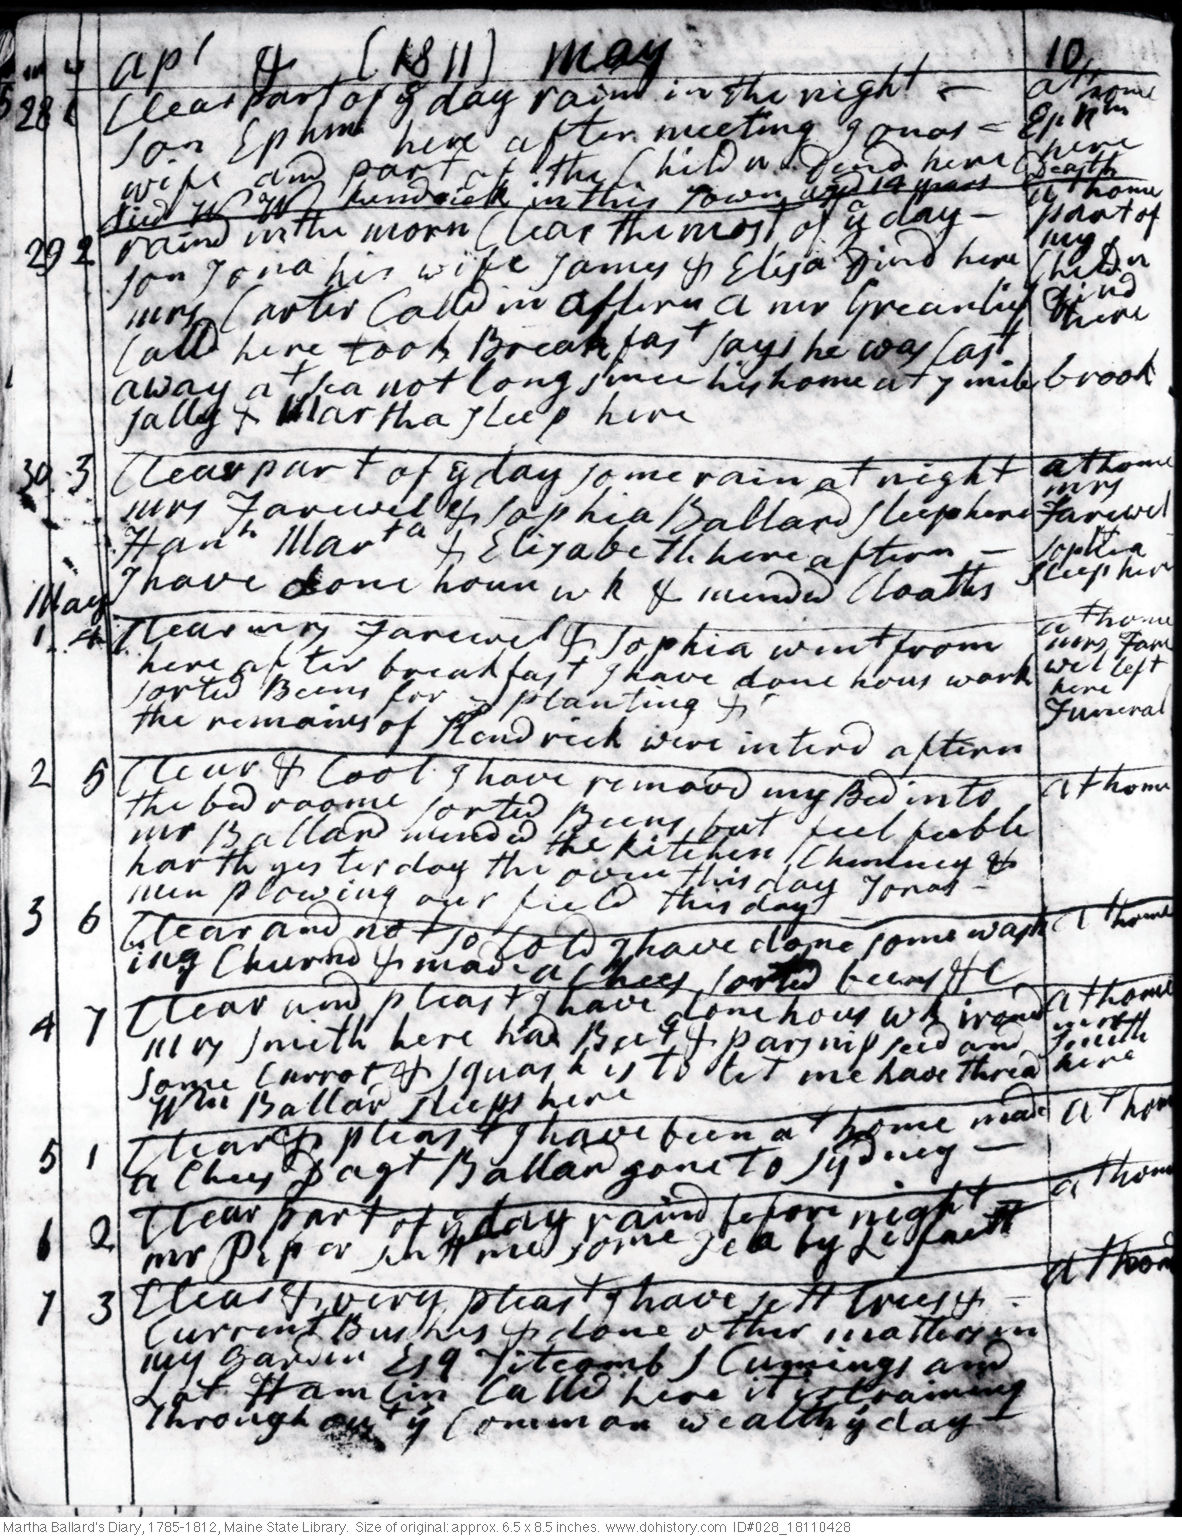 m w apl & (1811) may 10
28 1 Clear part of ÿ day rain in the night – at home
son Ephm here after meeting Jonas = Ephm here
wife and part of the Childn Dind here Death
died W W Kendrick in this Town aged 19 years
29 2 raind in the morn Clear the most of ÿ day – at home
son Jona his wife James & Elisa Dind here part of my
mrs Carter Calld in aftern a mr Greanlief Childn Dind
Calld here took Breakfast says he was Cast here
away at sea not long since his home at 7 mile brook
Sally & Martha sleep here
30 3 Clear part of ÿ day some rain at night at home
mrs Farewel & Sophia Ballard sleep here mrs Farewel
Hanh Marta & Elisabeth here aftern – Sophia
I have done houn wk & mended Cloaths sleep here
May
1 4 Clear mrs Farewel & Sophia went from at home
here after breakfast I have done hous work mrs Farewel left
sorted Beens for planting &c here
the remains of Kendrick were interd aftern Funeral
2 5 Clear & Cool I have removd my Bed into at home
the bed roome sorted Beens but feel feeble
mr Ballard mended the Kitchen Chimney &
harth yesterday the oven this day Jonas –
men plowing our field this day
3 6 Clear and not so Cold I have done some wash at home
ing Churnd & made a Chees sorted beens &C
4 7 Clear and pleast I have done hous wk irond at home
mrs Smith here had Beet & parsnip seed and mrs Smith
some Carrot & squash is to let me have thread here
Wm Ballard sleeps here
5 1 Clear & pleast I have been at home made at home
a Chees Dagt Ballard gone to Sydney –
6 2 Clear part of ÿ day raind before night at home
mr Piper sent me some Tea by
7 3 Clear & very pleast I have sett trees & – at home
Current Bushes & done other matters in
my Gardin Esq Titcomb S Cumings and
Lot Hamlin Calld here it is training
through out ÿ Common wealth ÿ day –
Martha Ballard's Diary, 1785-1812, Maine State Library. Size of original: approx. 6.5 x 8.5 inches. www.dohistory.com ID#028_18110428